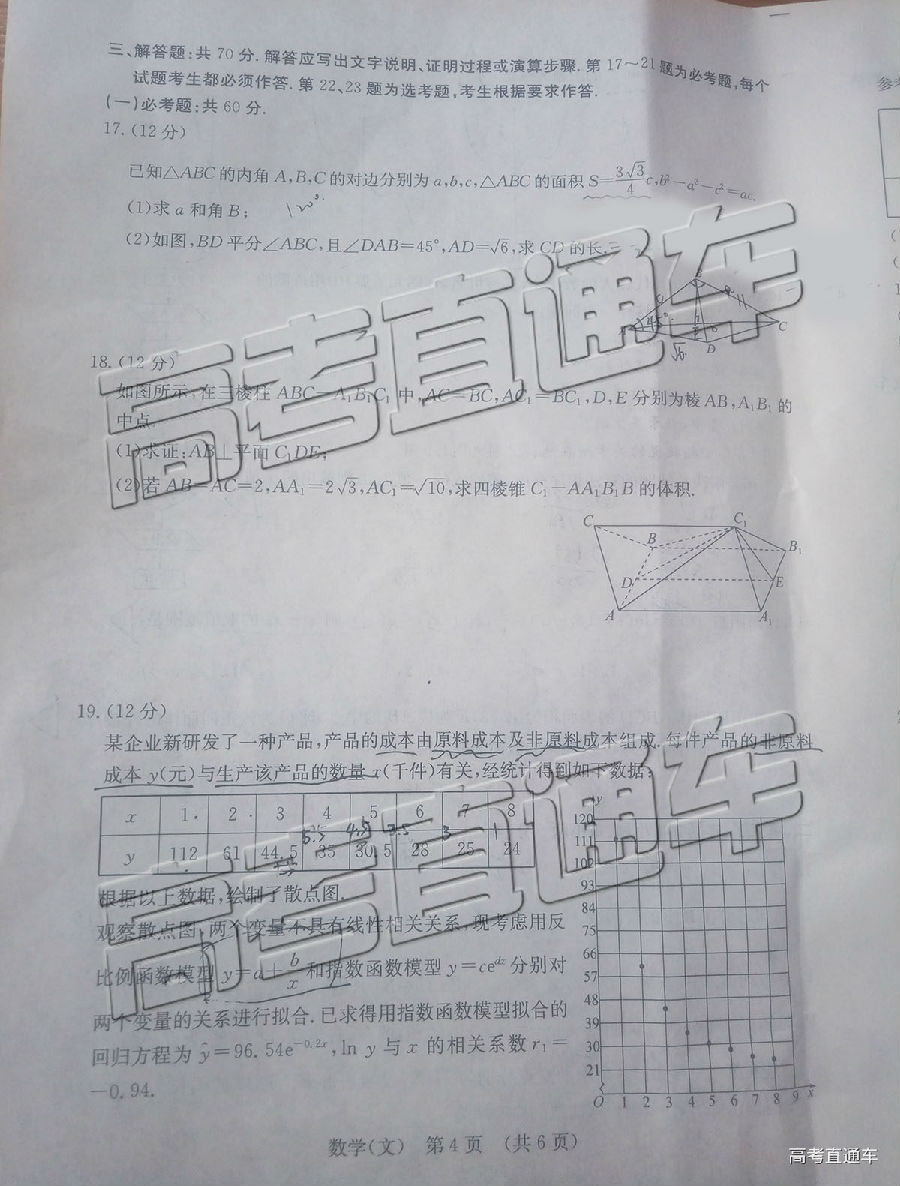 三、解答题:共 70 分. 解答应写出文字说明、证明过程或演算步骤. 第 17～21 题为必考题,每个
试题考生都必须作答. 第 22、23 题为选考题,考生根据要求作答.
(一)必考题:共 60 分.
17. (12 分)
已知△ABC 的内角 A,B,C 的对边分别为 a,b,c,△ABC 的面积 S=3√3/4 c,b²-a²-c²=ac.
(1)求 a 和角 B;
120°
(2)如图,BD 平分∠ABC,且∠DAB=45°,AD=√6,求 CD 的长.
45°
C
√6
D
18. (12 分)
如图所示,在三棱柱 ABC-A₁B₁C₁ 中,AC=BC,AC₁=BC₁,D,E 分别为棱 AB,A₁B₁ 的
中点.
(1)求证:AB⊥平面 C₁DE;
(2)若 AB=AC=2,AA₁=2√3,AC₁=√10,求四棱锥 C₁-AA₁B₁B 的体积.
C C₁
B B₁
D E
A A₁
19. (12 分)
某企业新研发了一种产品,产品的成本由原料成本及非原料成本组成. 每件产品的非原料
成本 y(元)与生产该产品的数量 x(千件)有关,经统计得到如下数据:
x 1 2 3 4 5 6 7 8
y 112 61 44.5 35 30.5 28 25 24
根据以上数据,绘制了散点图.
观察散点图,两个变量不具有线性相关关系,现考虑用反
比例函数模型 y=a+b/x 和指数函数模型 y=ce^dx 分别对
两个变量的关系进行拟合. 已求得用指数函数模型拟合的
回归方程为 ŷ=96.54e^-0.2x,ln y 与 x 的相关系数 r₁=
-0.94.
y
120
111
102
93
84
75
66
57
48
39
30
21
O 1 2 3 4 5 6 7 8 9 x
数学(文) 第 4 页 (共 6 页)
高考直通车
高考直通车
高考直通车